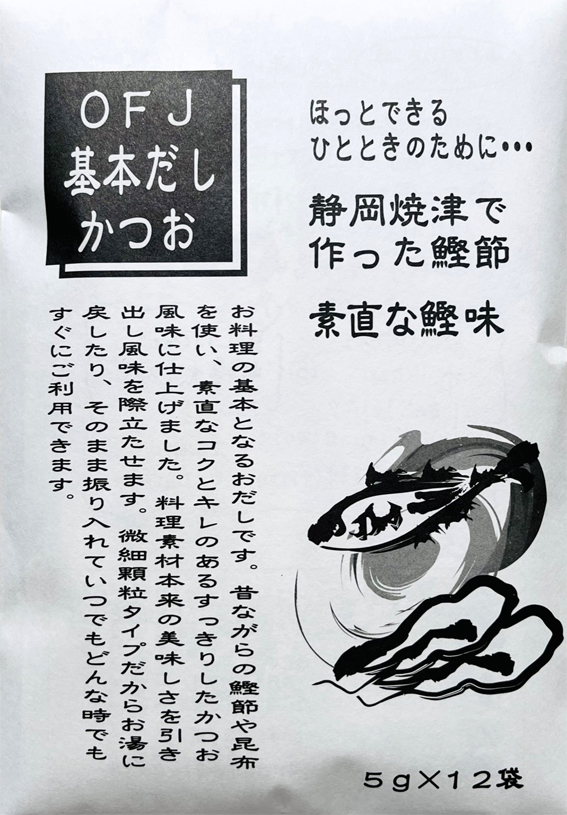 OFJ
基本だし
かつお
ほっとできる
ひとときのために・・・
静岡焼津で
作った鰹節
素直な鰹味
お料理の基本となるおだしです。昔ながらの鰹節や昆布
を使い、素直なコクとキレのあるすっきりしたかつお
風味に仕上げました。料理素材本来の美味しさを引き
出し風味を際立たせます。微細顆粒タイプだからお湯に
戻したり、そのまま振り入れていつでもどんな時でも
すぐにご利用できます。
5g×12袋